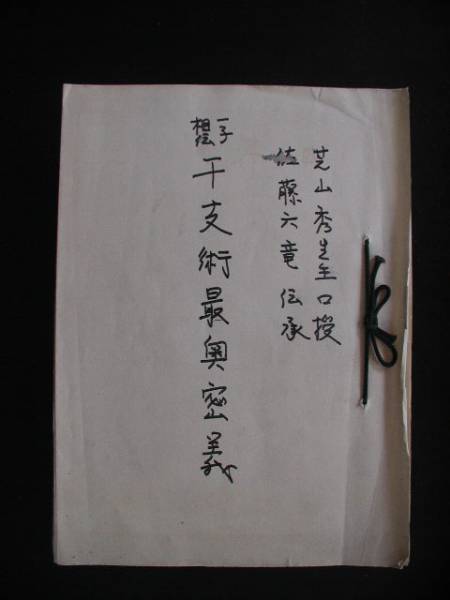 芝山秀口授
佐藤六竜伝承
一子
相伝
干支術最奥密義